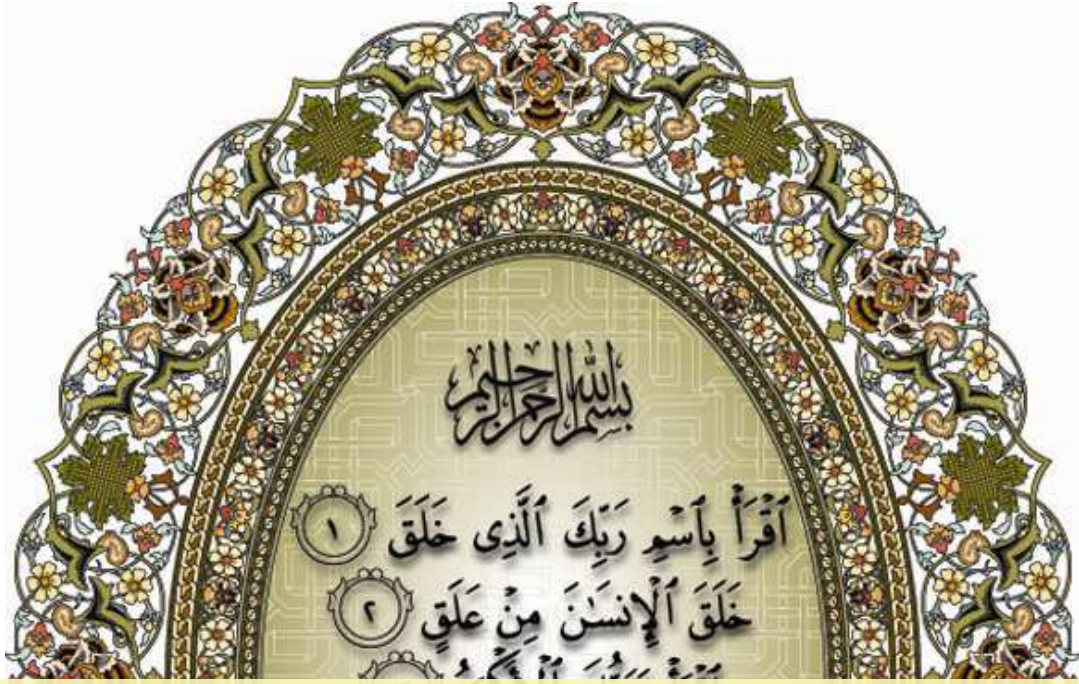 بسم الله الرحمن الرحيم
ٱقۡرَأۡ بِٱسۡمِ رَبِّكَ ٱلَّذِى خَلَقَ ١
خَلَقَ ٱلۡإِنسَـٰنَ مِنۡ عَلَقٍ ٢